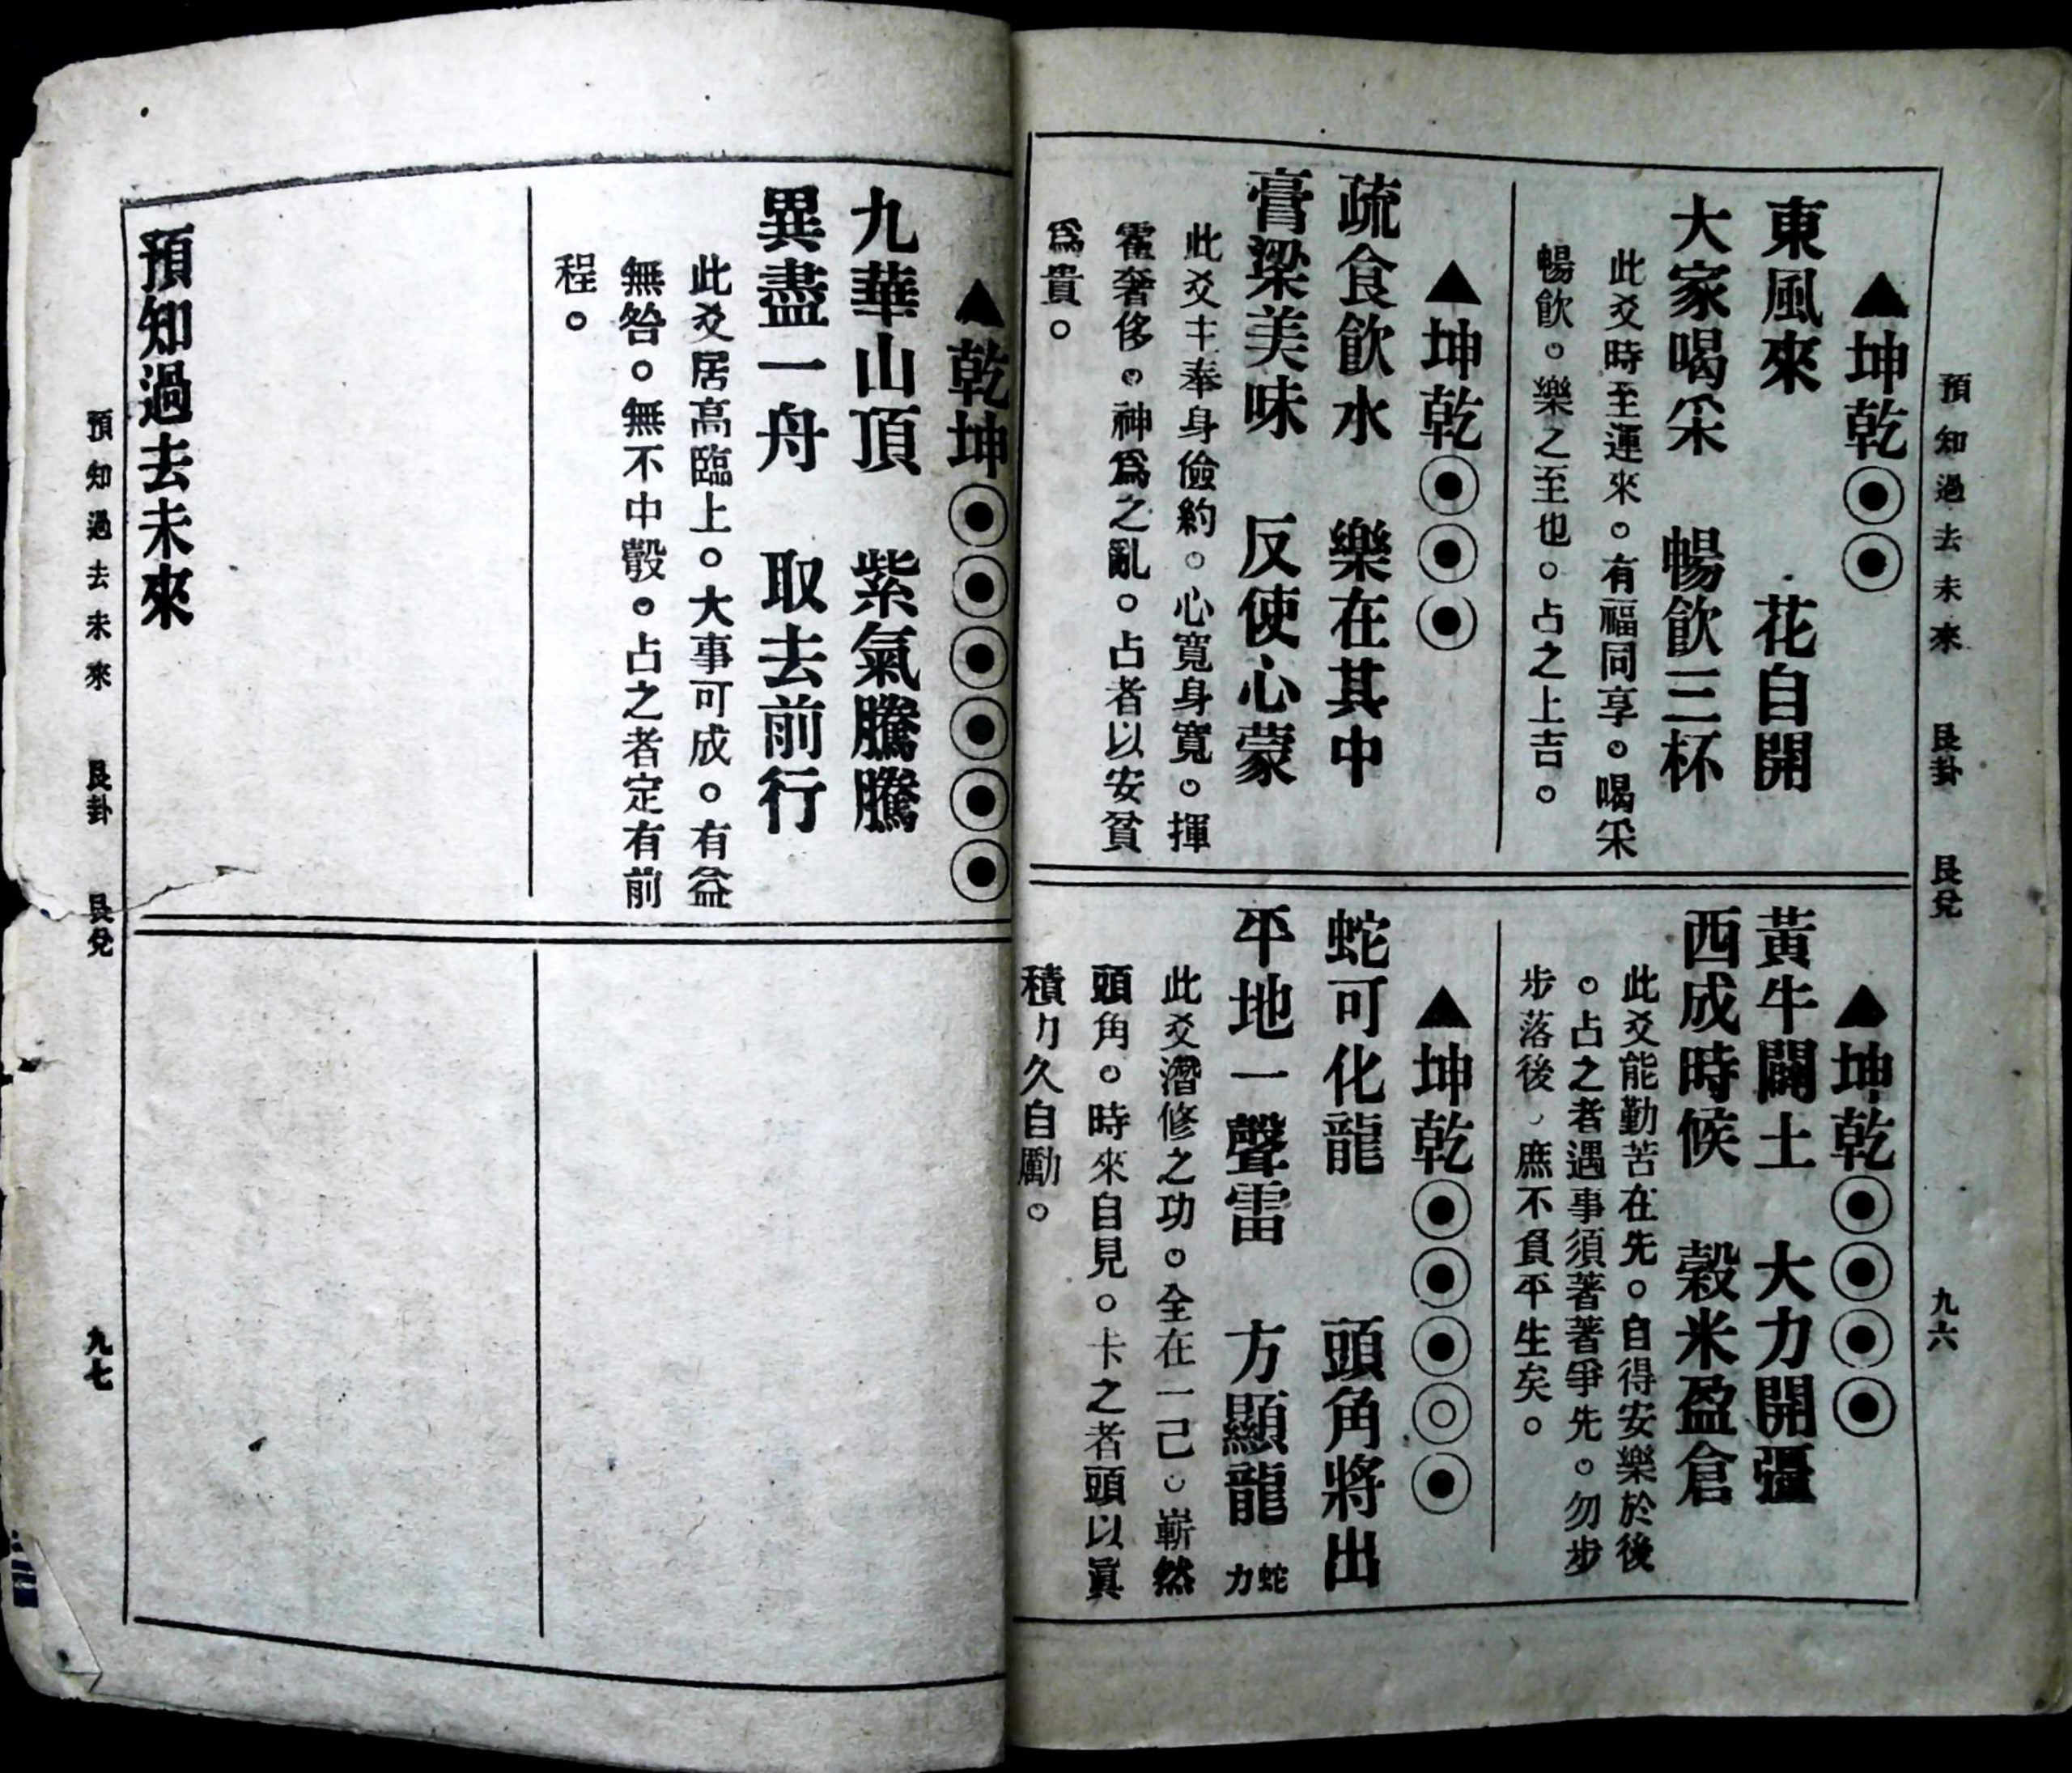 預知過去未來　艮卦　艮兌　九六
▲坤乾◉◉
東風來　花自開
大家喝采　暢飲三杯
此爻時至運來。有福同享。喝采
暢飲。樂之至也。占之上吉。
▲坤乾◉◉◉
疏食飲水　樂在其中
膏粱美味　反使心蒙
此爻主奉身儉約。心寬身寬。揮
霍奢侈。神爲之亂。占者以安貧
爲貴。
▲坤乾◉◉◉◉
黃牛闢土　大力開疆
西成時候　穀米盈倉
此爻能勤苦在先。自得安樂於後
。占之者遇事須著著爭先。勿步
步落後、庶不負平生矣。
▲坤乾◉◉◉◎◉
蛇可化龍　頭角將出
平地一聲雷　方顯龍蛇力
此爻潛修之功。全在一己。嶄然
頭角。時來自見。卡之者頭以眞
積力久自勵。
▲乾坤◉◉◉◉◉◉
九華山頂　紫氣騰騰
異盡一舟　取去前行
此爻居高臨上。大事可成。有益
無咎。無不中彀。占之者定有前
程。
預知過去未來
預知過去未來　艮卦　艮兌　九七